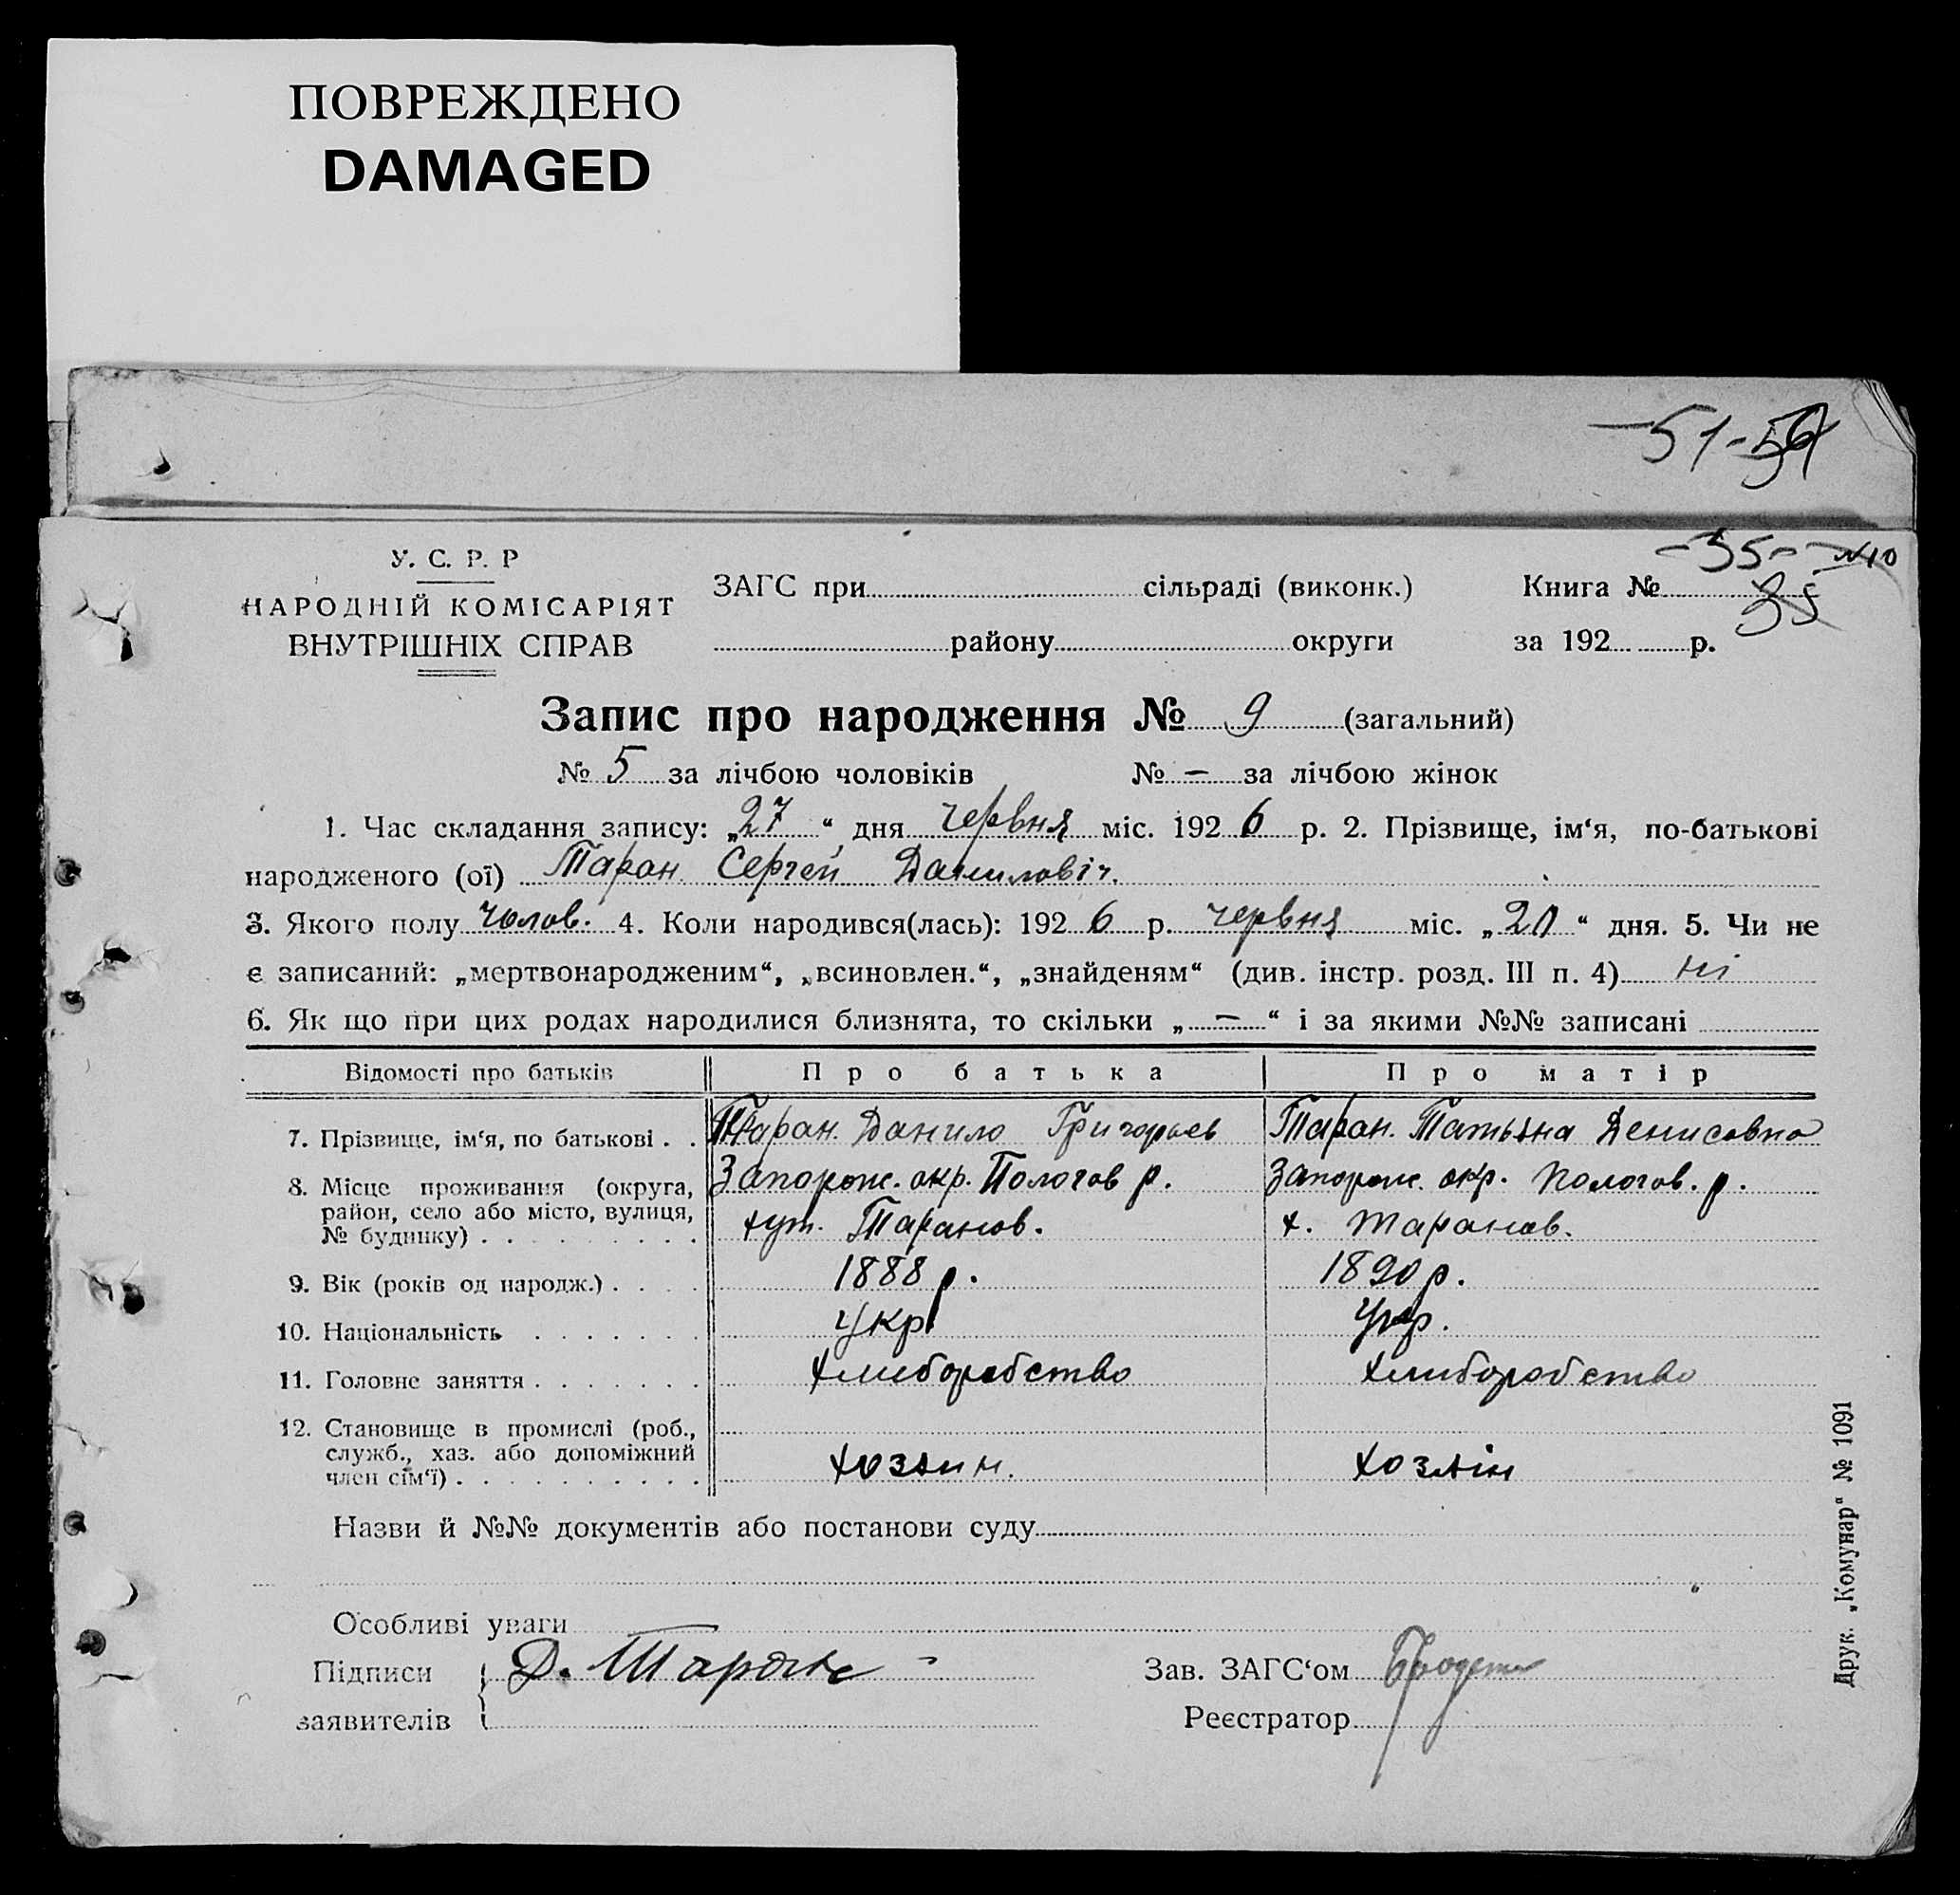 ПОВРЕЖДЕНО
DAMAGED
-51-
-35- №10
У. С. Р. Р
НАРОДНІЙ КОМІСАРІЯТ
ВНУТРІШНІХ СПРАВ
ЗАГС при сільраді (виконк.) Книга № 35
району округи за 192 р.
Запис про народження № 9 (загальний)
№ 5 за лічбою чоловіків № — за лічбою жінок
1. Час складання запису: „27“ дня червня міс. 1926 р. 2. Прізвище, ім‘я, по-батькові
народженого (ої) Таран Сергей Данилович.
3. Якого полу чолов. 4. Коли народився(лась): 1926 р. червня міс. „20“ дня. 5. Чи не
є записаний: „мертвонародженим“, „всиновлен.“, „знайденям“ (див. інстр. розд. III п. 4) ні
6. Як що при цих родах народилися близнята, то скільки „—“ і за якими №№ записані
Відомості про батьків Про батька Про матір
7. Прізвище, ім‘я, по батькові . . Таран. Данило Григорьев Таран. Татьяна Денисовна
8. Місце проживання (округа, Запорож. окр. Пологов р. Запорож. окр. Пологов. р.
район, село або місто, вулиця, хут. Таранов. х. Таранов.
№ будинку) . . . . . . . . .
9. Вік (років од народж.) . . . . 1888 р. 1890 р.
10. Національність . . . . . . . Укр. Укр.
11. Головне заняття . . . . . . . хлиборобство хлиборобство
12. Становище в промислі (роб.,
служб., хаз. або допоміжний хозяин. хозяін
член сім‘ї) . . . . . . . . . .
Назви й №№ документів або постанови суду
Особливі уваги
Підписи Д. Таран Зав. ЗАГС‘ом
заявителів Реєстратор
Друк. „Комунар“ № 1091